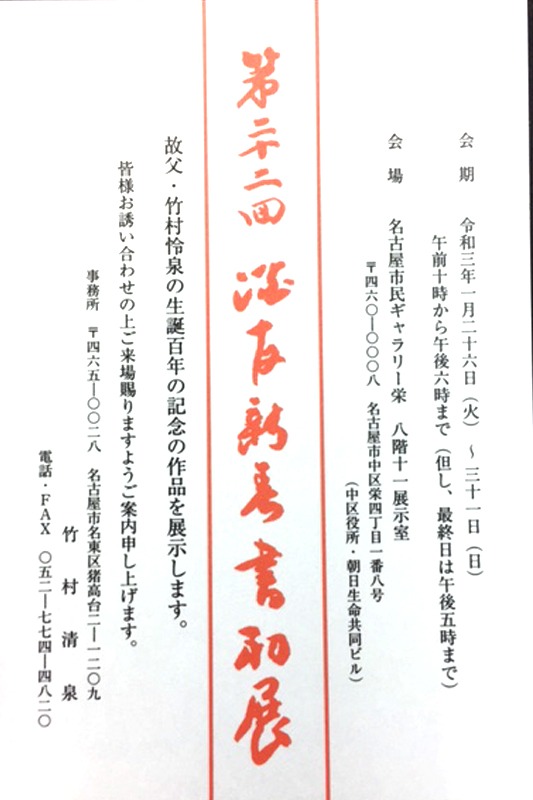 会 期　令和三年一月二十六日（火）～ 三十一日（日）
午前十時から午後六時まで（但し、最終日は午後五時まで）
会 場　名古屋市民ギャラリー栄　八階十一展示室
〒四六〇―〇〇〇八　名古屋市中区栄四丁目一番八号
（中区役所・朝日生命共同ビル）
第二十二回　友新春書初展
故父・竹村怜泉の生誕百年の記念の作品を展示します。
皆様お誘い合わせの上ご来場賜りますようご案内申し上げます。
事務所　〒四六五―〇〇二八　名古屋市名東区猪高台二―一二〇九
竹 村 清 泉
電話・ＦＡＸ　〇五二―七七四―四八二〇